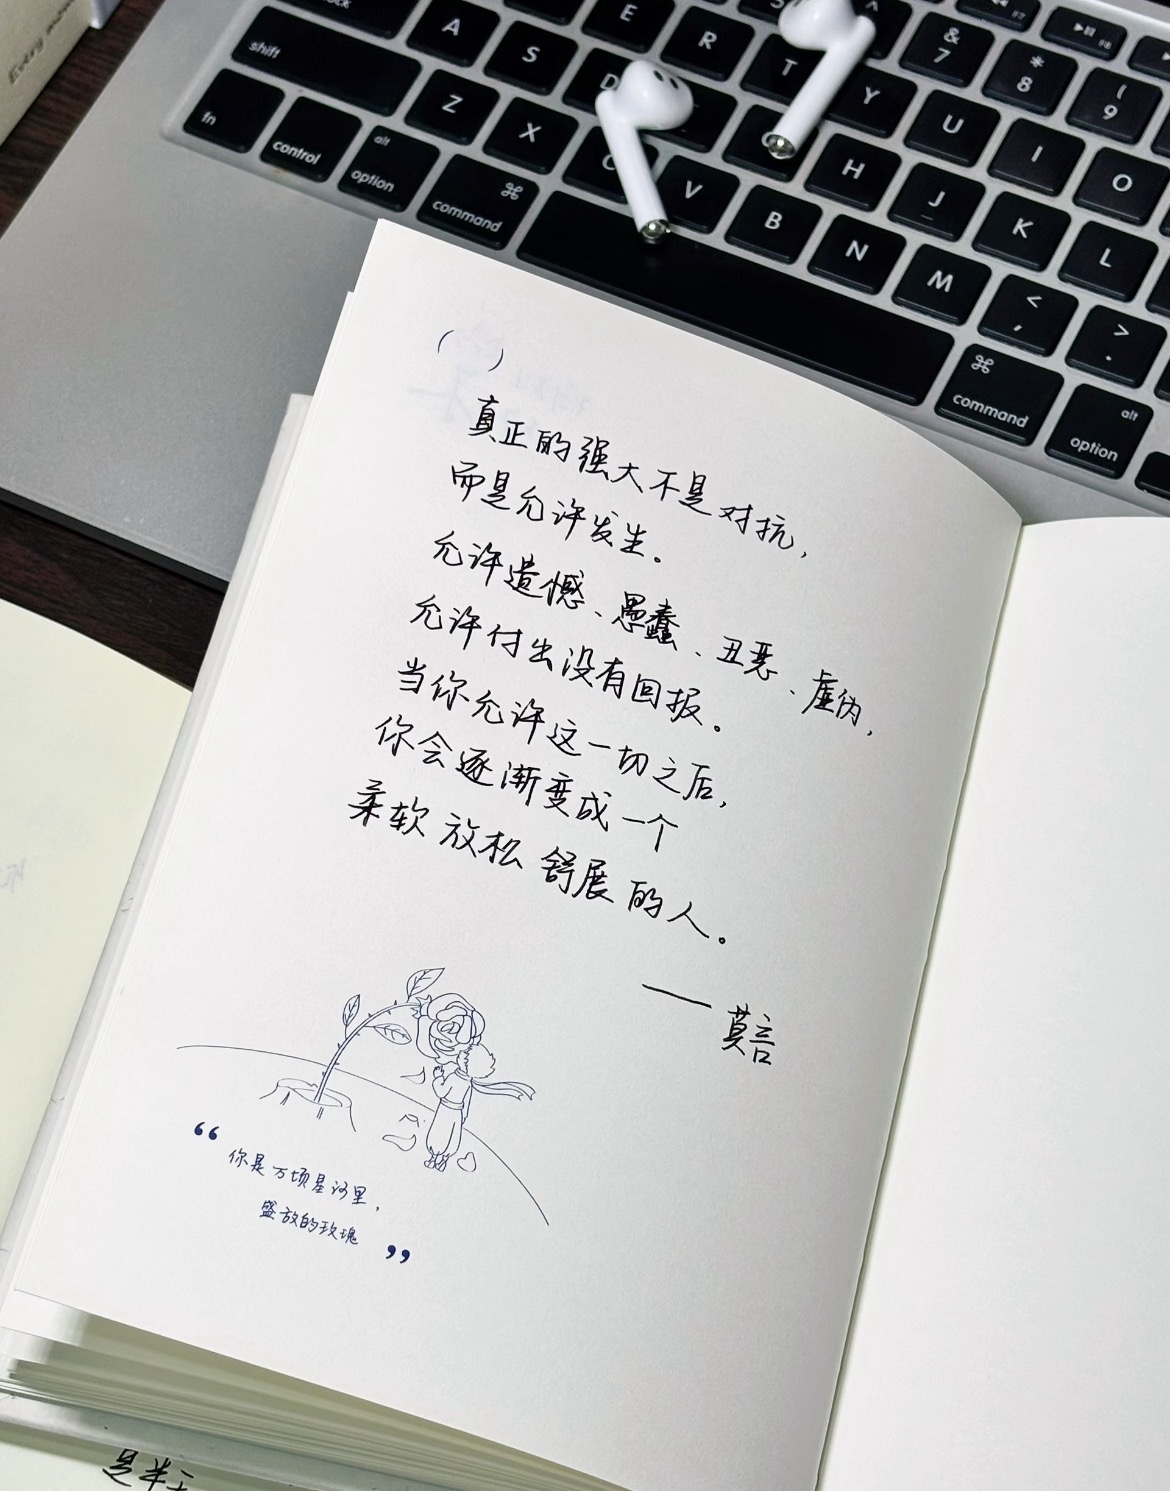 Every
lock
A
S
E
R
T
Y
&
7
*
8
(
9
shift
Z
X
D
C
V
B
H
U
I
O
J
K
L
N
M
<
,
>
.
fn
control
alt
option
⌘
command
⌘
command
alt
option
( )
真正的强大不是对抗,
而是允许发生。
允许遗憾、愚蠢、丑恶、虚伪,
允许付出没有回报。
当你允许这一切之后,
你会逐渐变成一个
柔软 放松 舒展 的人。
——莫言
“你是万顷星河里,
盛放的玫瑰”
是半